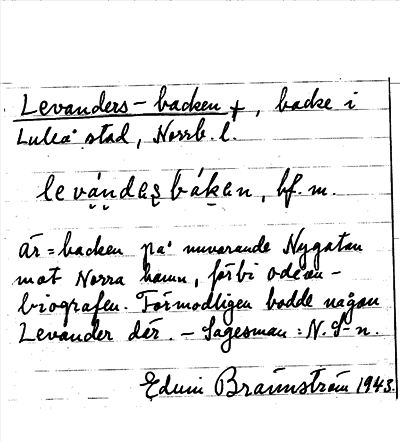 Levanders-backen +, backe i
Luleå stad, Norrb. l.
levándas̯bákan, bf. m.
är = backen på nuvarande Nygatan
mot Norra hamn, förbi odéon-
biografen. Förmodligen bodde någon
Levander där. – Sagesman: N. S-n.
Edvin Brännström 1943.